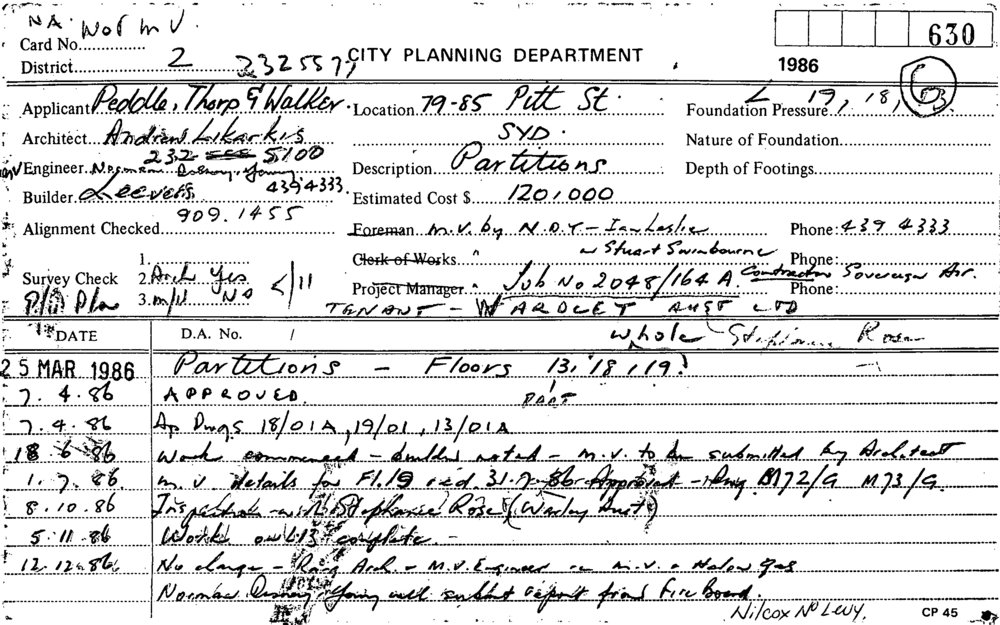 NA. Not m V
Card No.
630
District 2 2325577 CITY PLANNING DEPARTMENT
1986
Applicant Peddle, Thorp & Walker. Location 79-85 Pitt St. Foundation Pressure L 19, 18, 13
Architect Andrew Likarkis SYD. Nature of Foundation
232 5100
Engineer Norman Disney Young Description Partitions Depth of Footings
Builder Leevers 4394333. Estimated Cost $ 120,000
909.1455
Alignment Checked Foreman M.V. by N.D.Y - Ian Leslie Phone: 439 4333
1. Clerk of Works " " Stuart Swinbourne Phone:
Survey Check 2. Arch Yes </11 Project Manager " Job No 2048/164 A. Contractor Sovereign Air. Phone:
P/A Plan 3. m/v No
TENANT - WARDLEY AUST LTD
DATE D.A. No. / whole Stephanie Rose
25 MAR 1986 Partitions - Floors 13, 18, 19.
7. 4. 86 APPROVED. PART
7. 4. 86 Ap Dwgs 18/01A, 19/01, 13/01A
18 6 86 Work commenced - builder noted - M.V. to be submitted by Architect
1. 7. 86 m.v. details for Fl.19 rec'd 31.7.86 Approval - Dwg M72/G M73/G.
8. 10. 86 Inspection with Stephanie Rose (Warley Aust)
5 11 86 Work on L13 complete. -
12. 12. 86 No change - Ring Arch. - M.V. Engineer re m.v. & Halon gas
Norman Disney Young will submit report from Fire Board.
Wilcox No Levy. CP 45